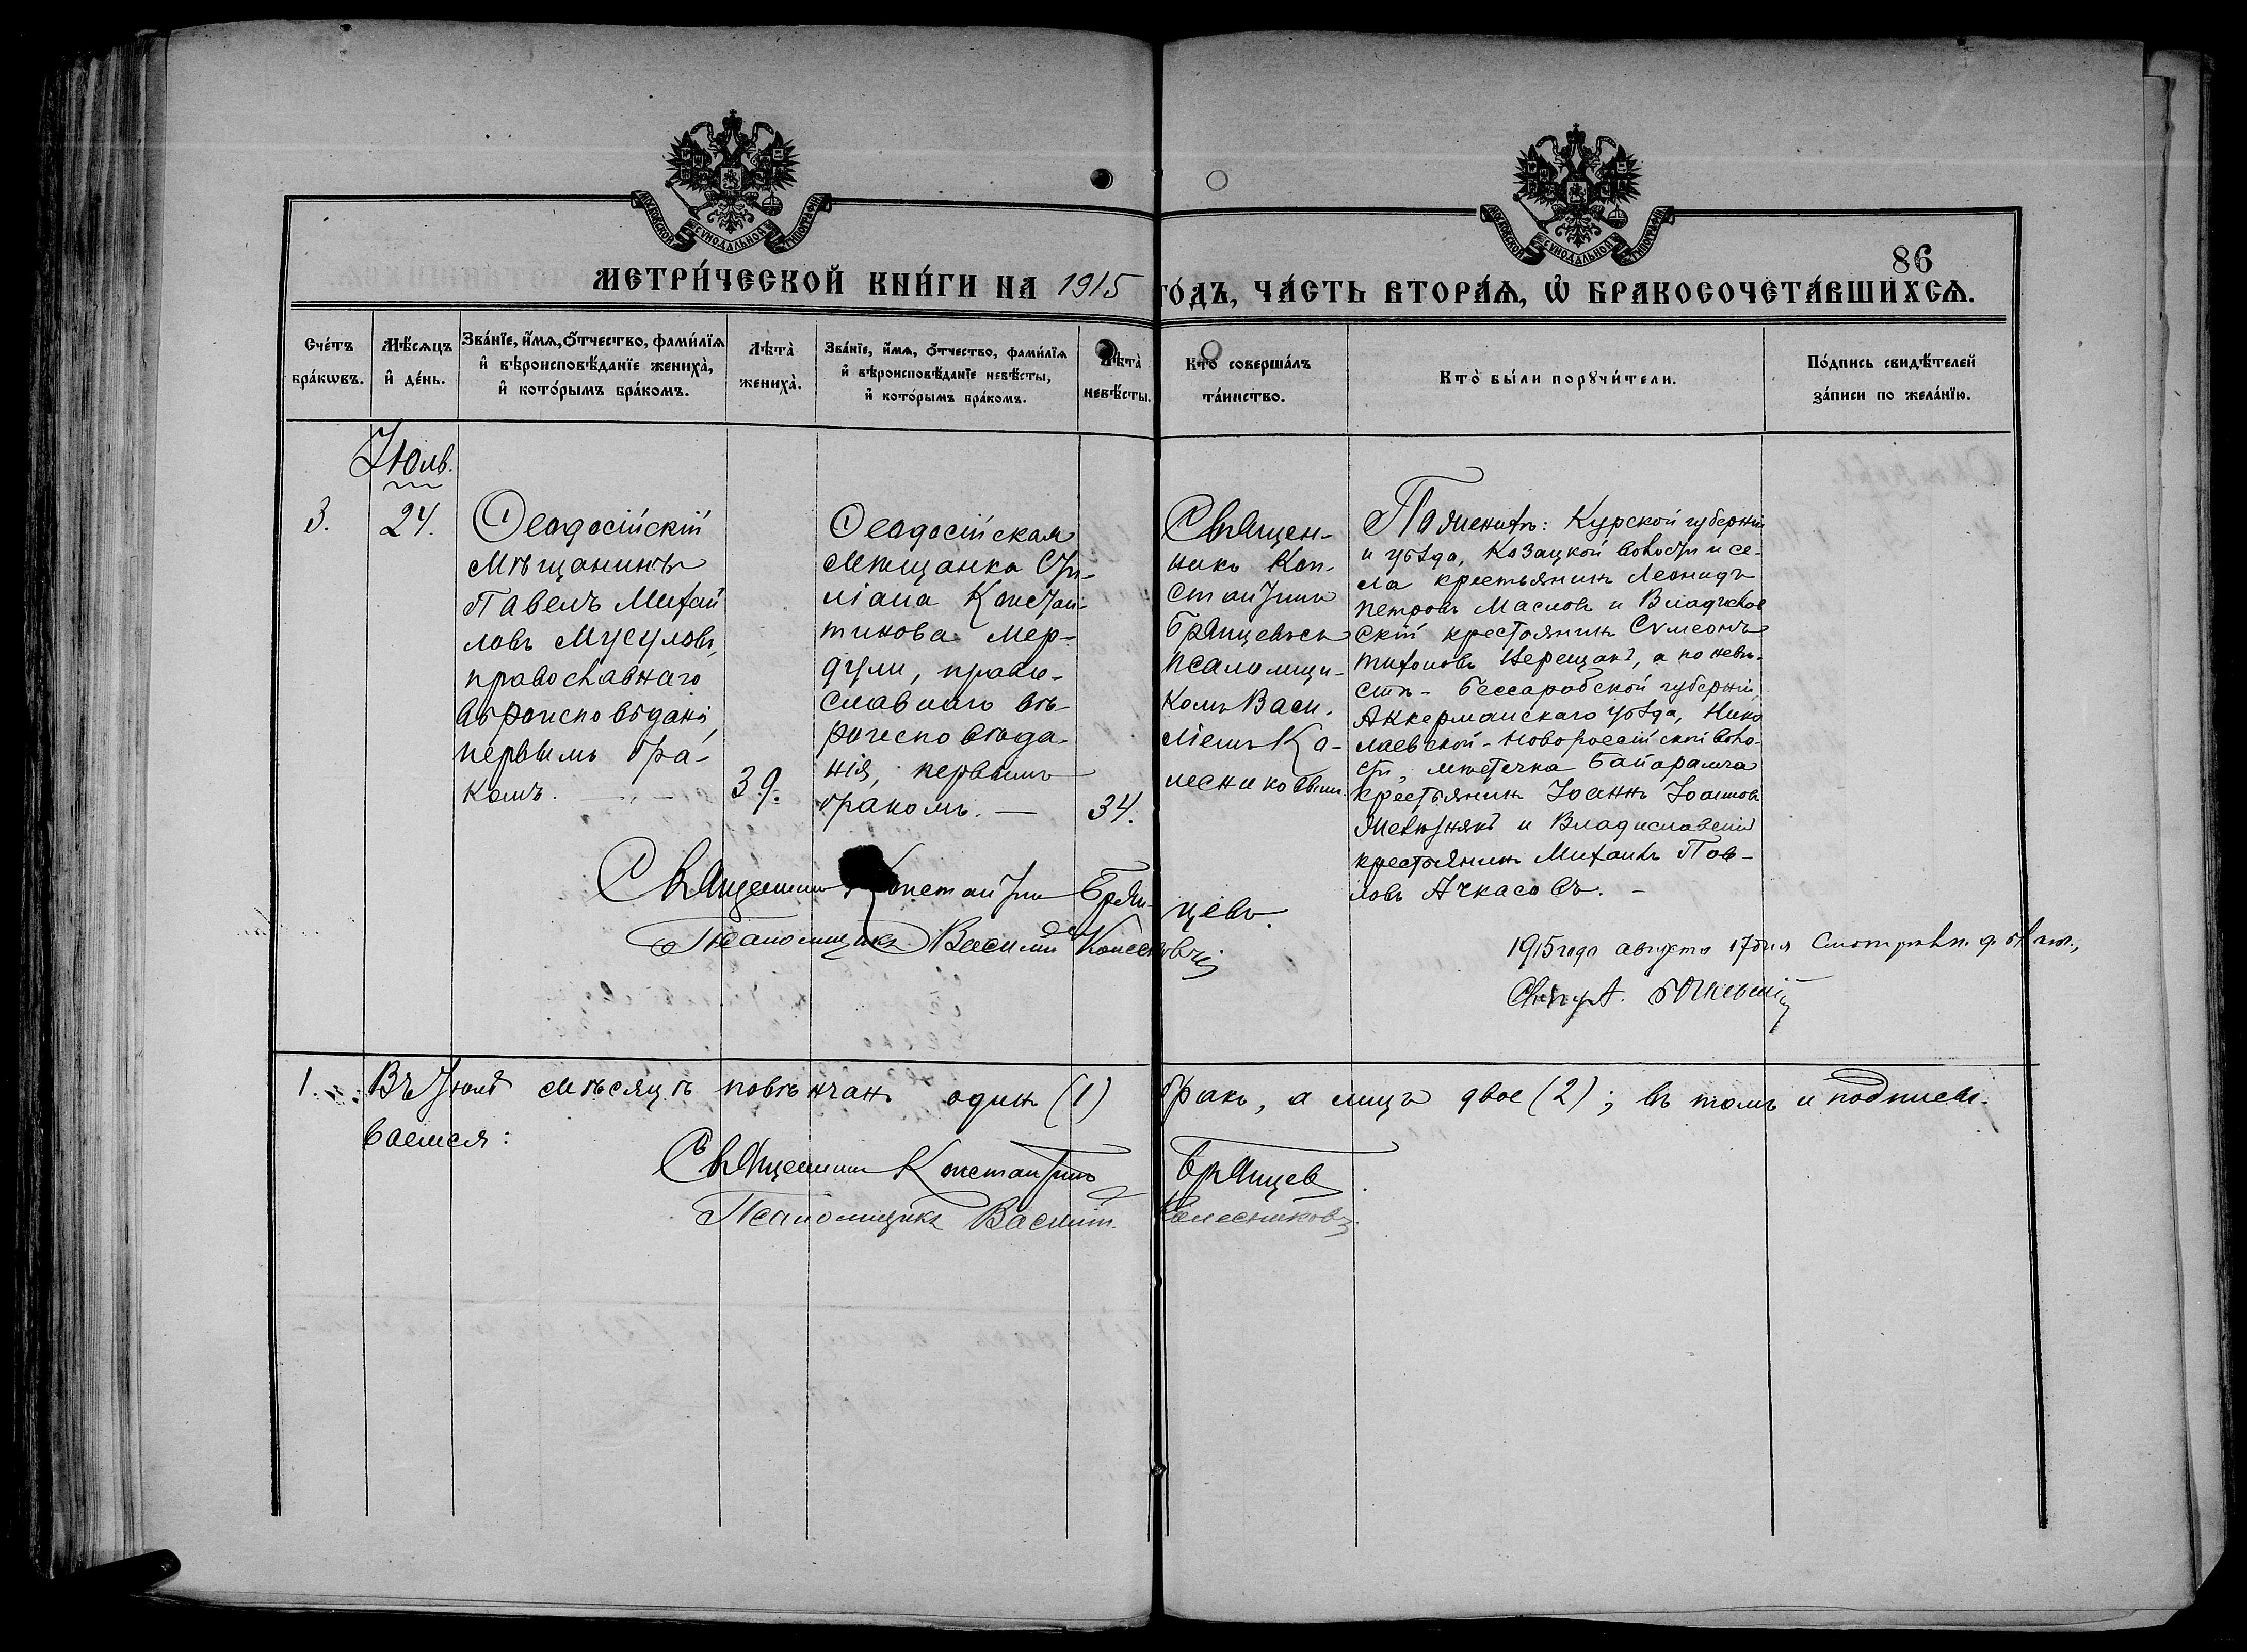 МОСКОВСКОЙ СѴНОДАЛЬНОЙ ТИПОГРАФІИ
МОСКОВСКОЙ СѴНОДАЛЬНОЙ ТИПОГРАФІИ
86
МЕТРИ́ЧЕСКОЙ КНИ́ГИ НА 1915 ГО́ДЪ, ЧА́СТЬ ВТОРА́Ѧ, Ѡ҆ БРАКОСОЧЕТА́ВШИХСѦ.
Сче́тъ
бра́кѡвъ.
Мѣ́сѧцъ
и҆ де́нь.
Зва́нїе, и҆́мѧ, ѻ҆́тчество, фами́лїѧ
и҆ вѣроисповѣ́данїе жениха̀,
и҆ кото́рымъ бра́комъ.
Лѣта̀
жениха̀.
Зва́нїе, и҆́мѧ, ѻ҆́тчество, фами́лїѧ
и҆ вѣроисповѣ́данїе невѣ́сты,
и҆ кото́рымъ бра́комъ.
Лѣта̀
невѣ́сты.
Кто̀ соверша́лъ
та́инство.
Кто̀ бы́ли порꙋчи́тели.
По́дпись свидѣ́телей
за́писи по жела́нїю.
Іюль.
3.
24.
Ѳеодосійскій
мѣщанинъ
Павелъ Михай
ловъ Мусуловъ,
православнаго
вѣроисповѣданія
первымъ бра-
комъ.
39.
Ѳеодосійская
мѣщанка
Констан-
тинова Мер-
дули, право-
славнаго вѣ-
роисповѣда-
нія, первымъ
бракомъ. —
34.
Священ-
никъ Кон-
стантинъ
Брянцевъ съ
псаломщи-
комъ Васи-
ліемъ Ко-
лесниковымъ.
По женихѣ: Курской губерніи
и уѣзда, Козацкой волости и се-
ла крестьянинъ Леонидъ
Петровъ Масловъ и Владислав
скій крестьянинъ Сѵмеонъ
Тихоновъ Терещакъ, а по невѣ-
стѣ - Бессарабской губерніи,
Аккерманскаго уѣзда, Нико
лаевской-Новороссійской воло-
сти, мѣстечка Байрамча
крестьянинъ Іоаннъ Іоанновъ
и Владиславскій
крестьянинъ Михаилъ Пав-
ловъ Ачкасовъ. -
Священникъ Константинъ Брянцевъ.
Псаломщикъ Василій Колесниковъ
1915 года августа 17 дня Смотрѣлъ
1. Въ Іюлѣ мѣсяцѣ повѣнчанъ одинъ (1) бракъ, а лицъ двое (2); въ томъ и подписы-
ваемся:
Священникъ Константинъ Брянцев
Псаломщикъ Василій Колесниковъ.